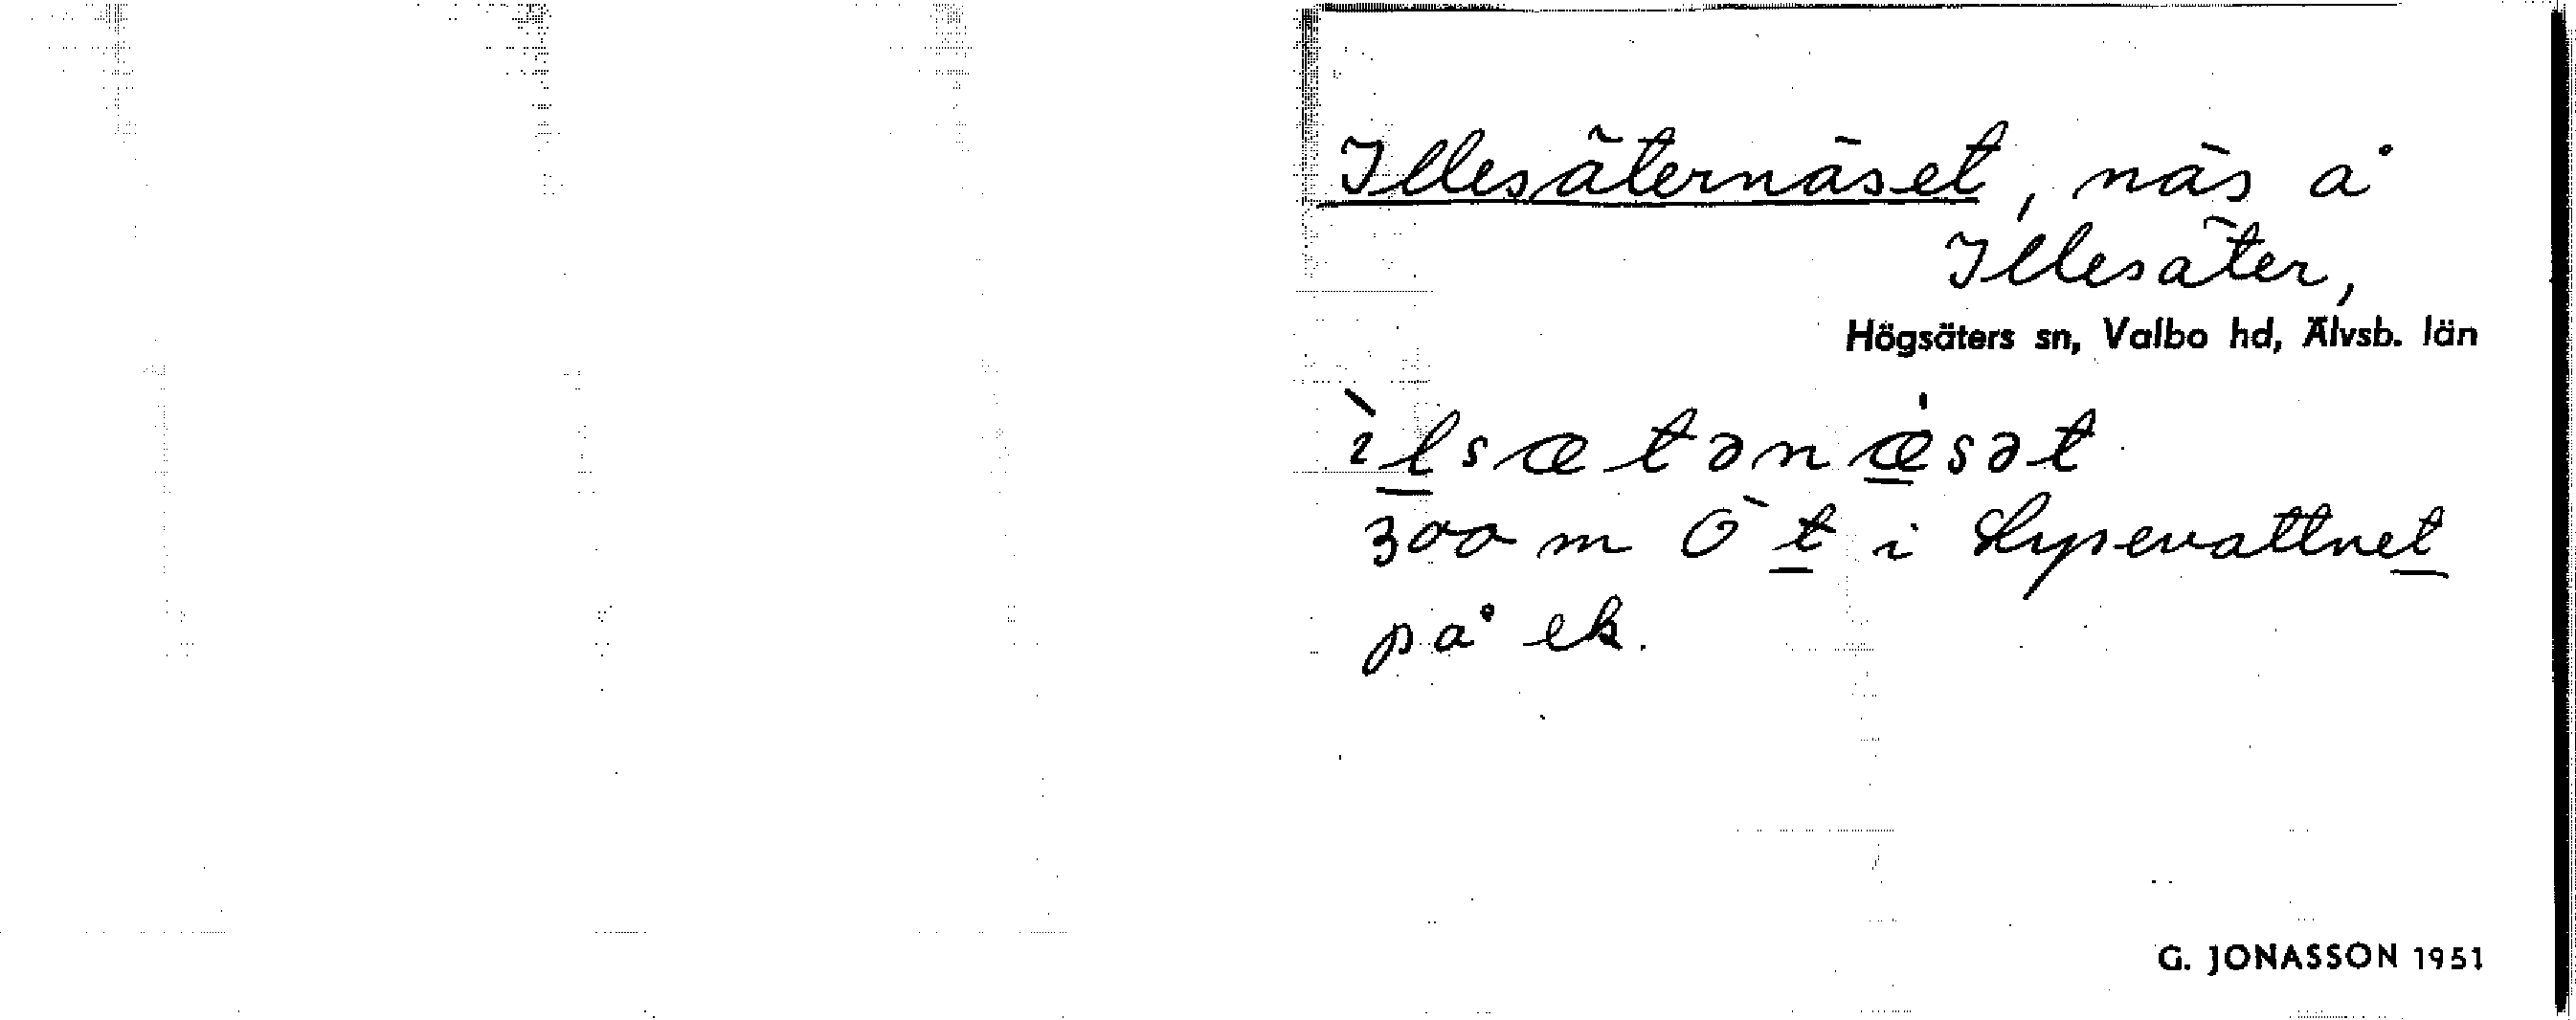 Illesäternäset, näs å
Illesäter,
Högsäters sn, Valbo hd, Älvsb. län
ìlsætənæ̍sət
300 m Ö t i Lysevattnet
på ek.
G. JONASSON 1951